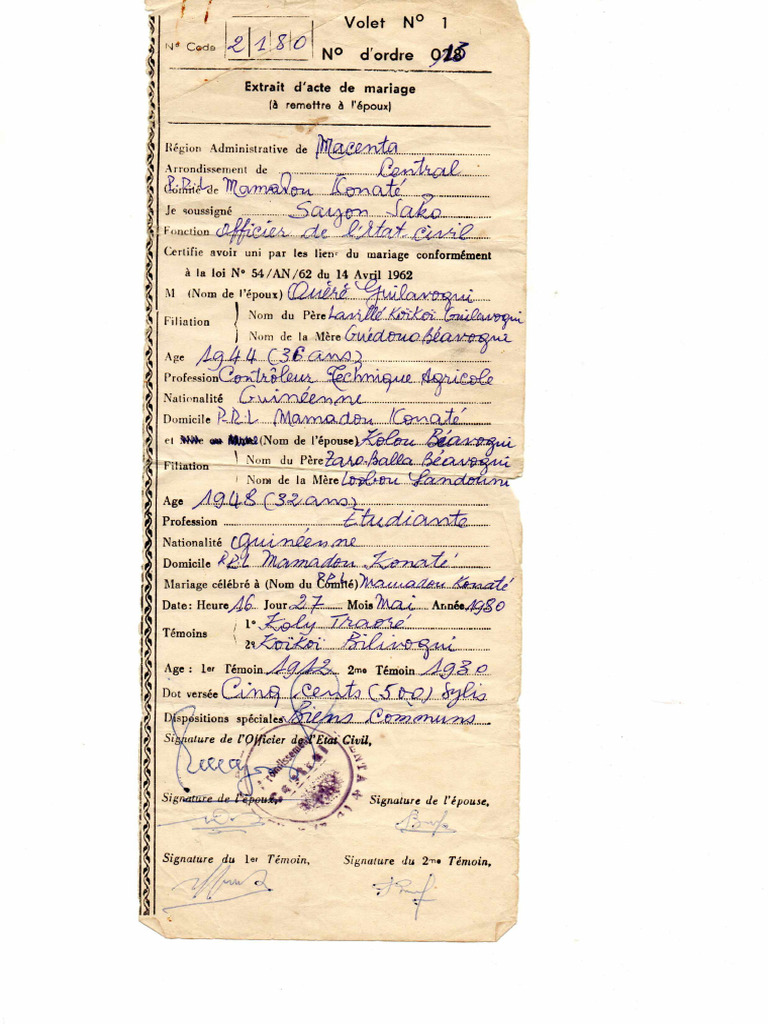 Volet N° 1
N° Code 2180
N° d'ordre
Extrait d'acte de mariage
(à remettre à l'époux)
Région Administrative de Macenta
Arrondissement de Central
P.R.L Comité de Mamadou Konaté
Je soussigné Sayon Sako
Fonction Officier de l'Etat Civil
Certifie avoir uni par les liens du mariage conformément
à la loi N° 54/AN/62 du 14 Avril 1962
M (Nom de l'époux) Ouéré Guilavogui
Filiation
Nom du Père Lavillé Koïkoï Guilavogui
Nom de la Mère Guédouo Béavogui
Age 1944 (36 ans)
Profession Contrôleur Technique Agricole
Nationalité Guinéenne
Domicile P.R.L Mamadou Konaté
et (Nom de l'épouse) Kolou Béavogui
Filiation
Nom du Père Zaro-Balla Béavogui
Nom de la Mère
Age 1948 (32 ans)
Profession Etudiante
Nationalité Guinéenne
Domicile P.R.L Mamadou Konaté
Mariage célébré à (Nom du Comité) P.R.L Mamadou Konaté
Date : Heure 16 Jour 27 Mois Mai Année 1980
Témoins
1° Koly Traoré
2° Koïkoï Bilivogui
Age : 1er Témoin 1912 2me Témoin 1930
Dot versée Cinq cents (500) Sylis
Dispositions spéciales Biens Communs
Signature de l'Officier de l'Etat Civil,
Arrondissement
Central
Signature de l'époux,
Signature de l'épouse,
Signature du 1er Témoin,
Signature du 2me Témoin,